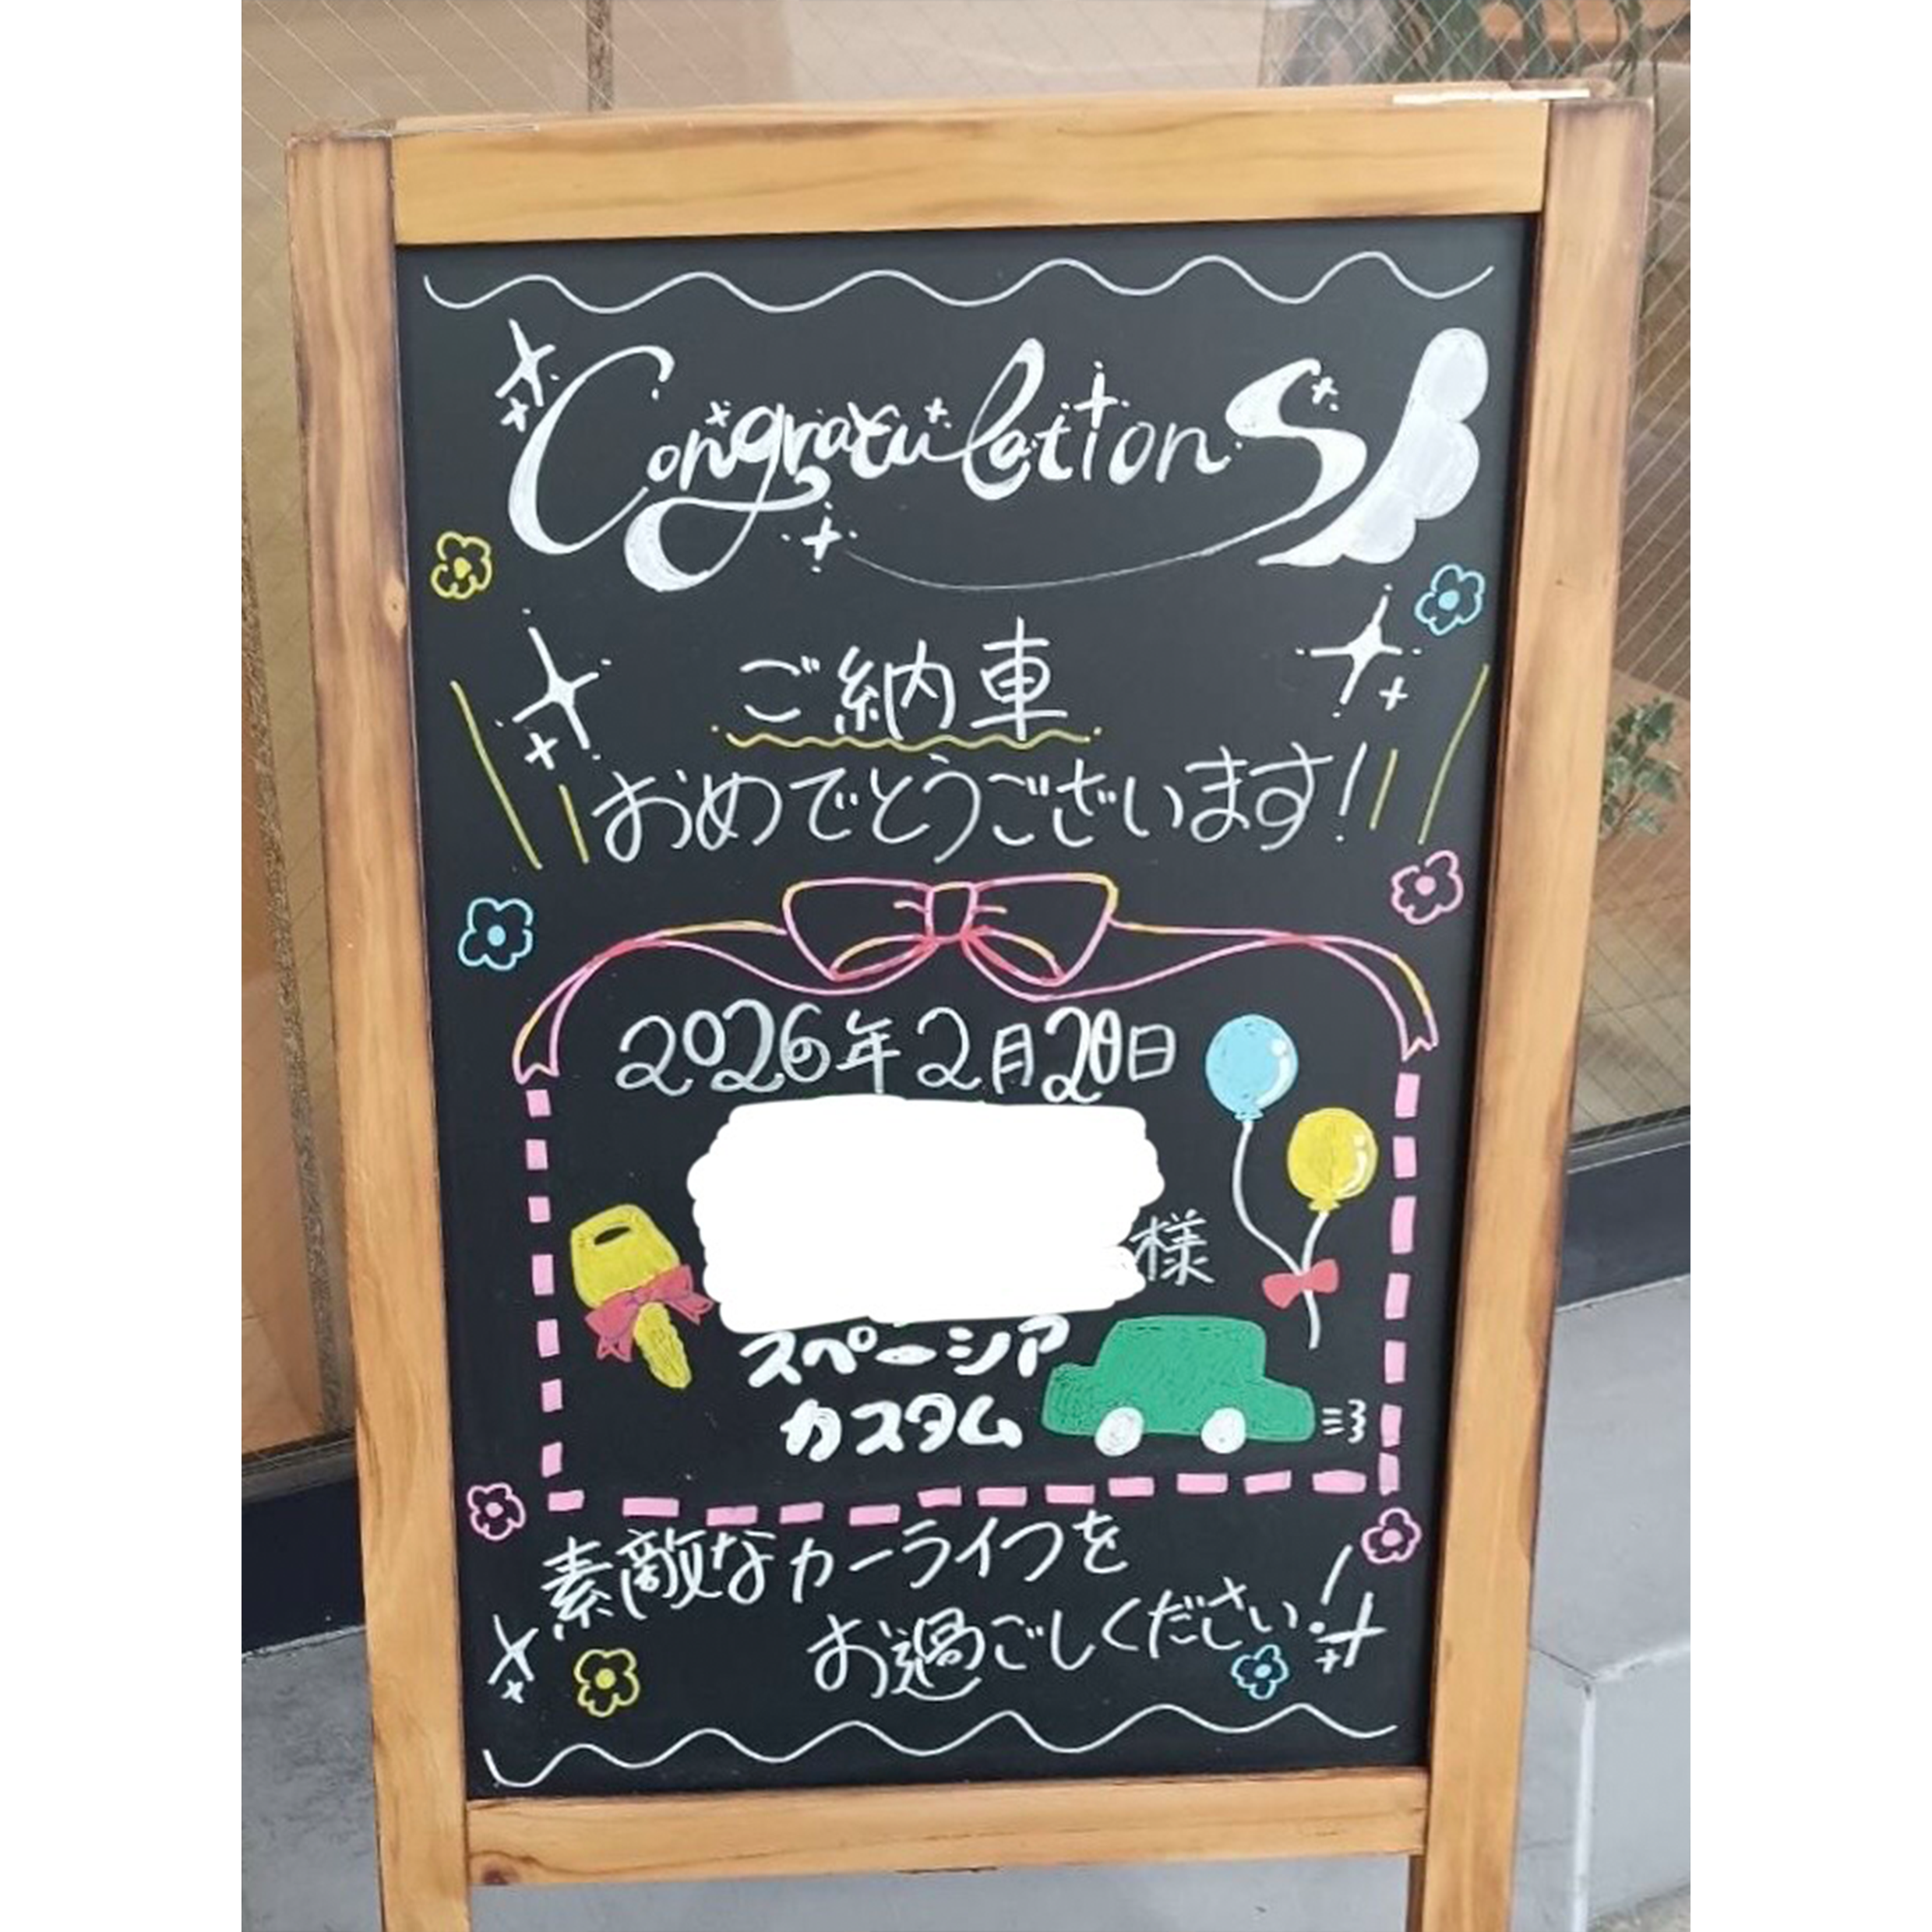 Congratulations
ご納車
おめでとうございます!
2026年2月20日
様
スペーシア
カスタム
素敵なカーライフを
お過ごしください!